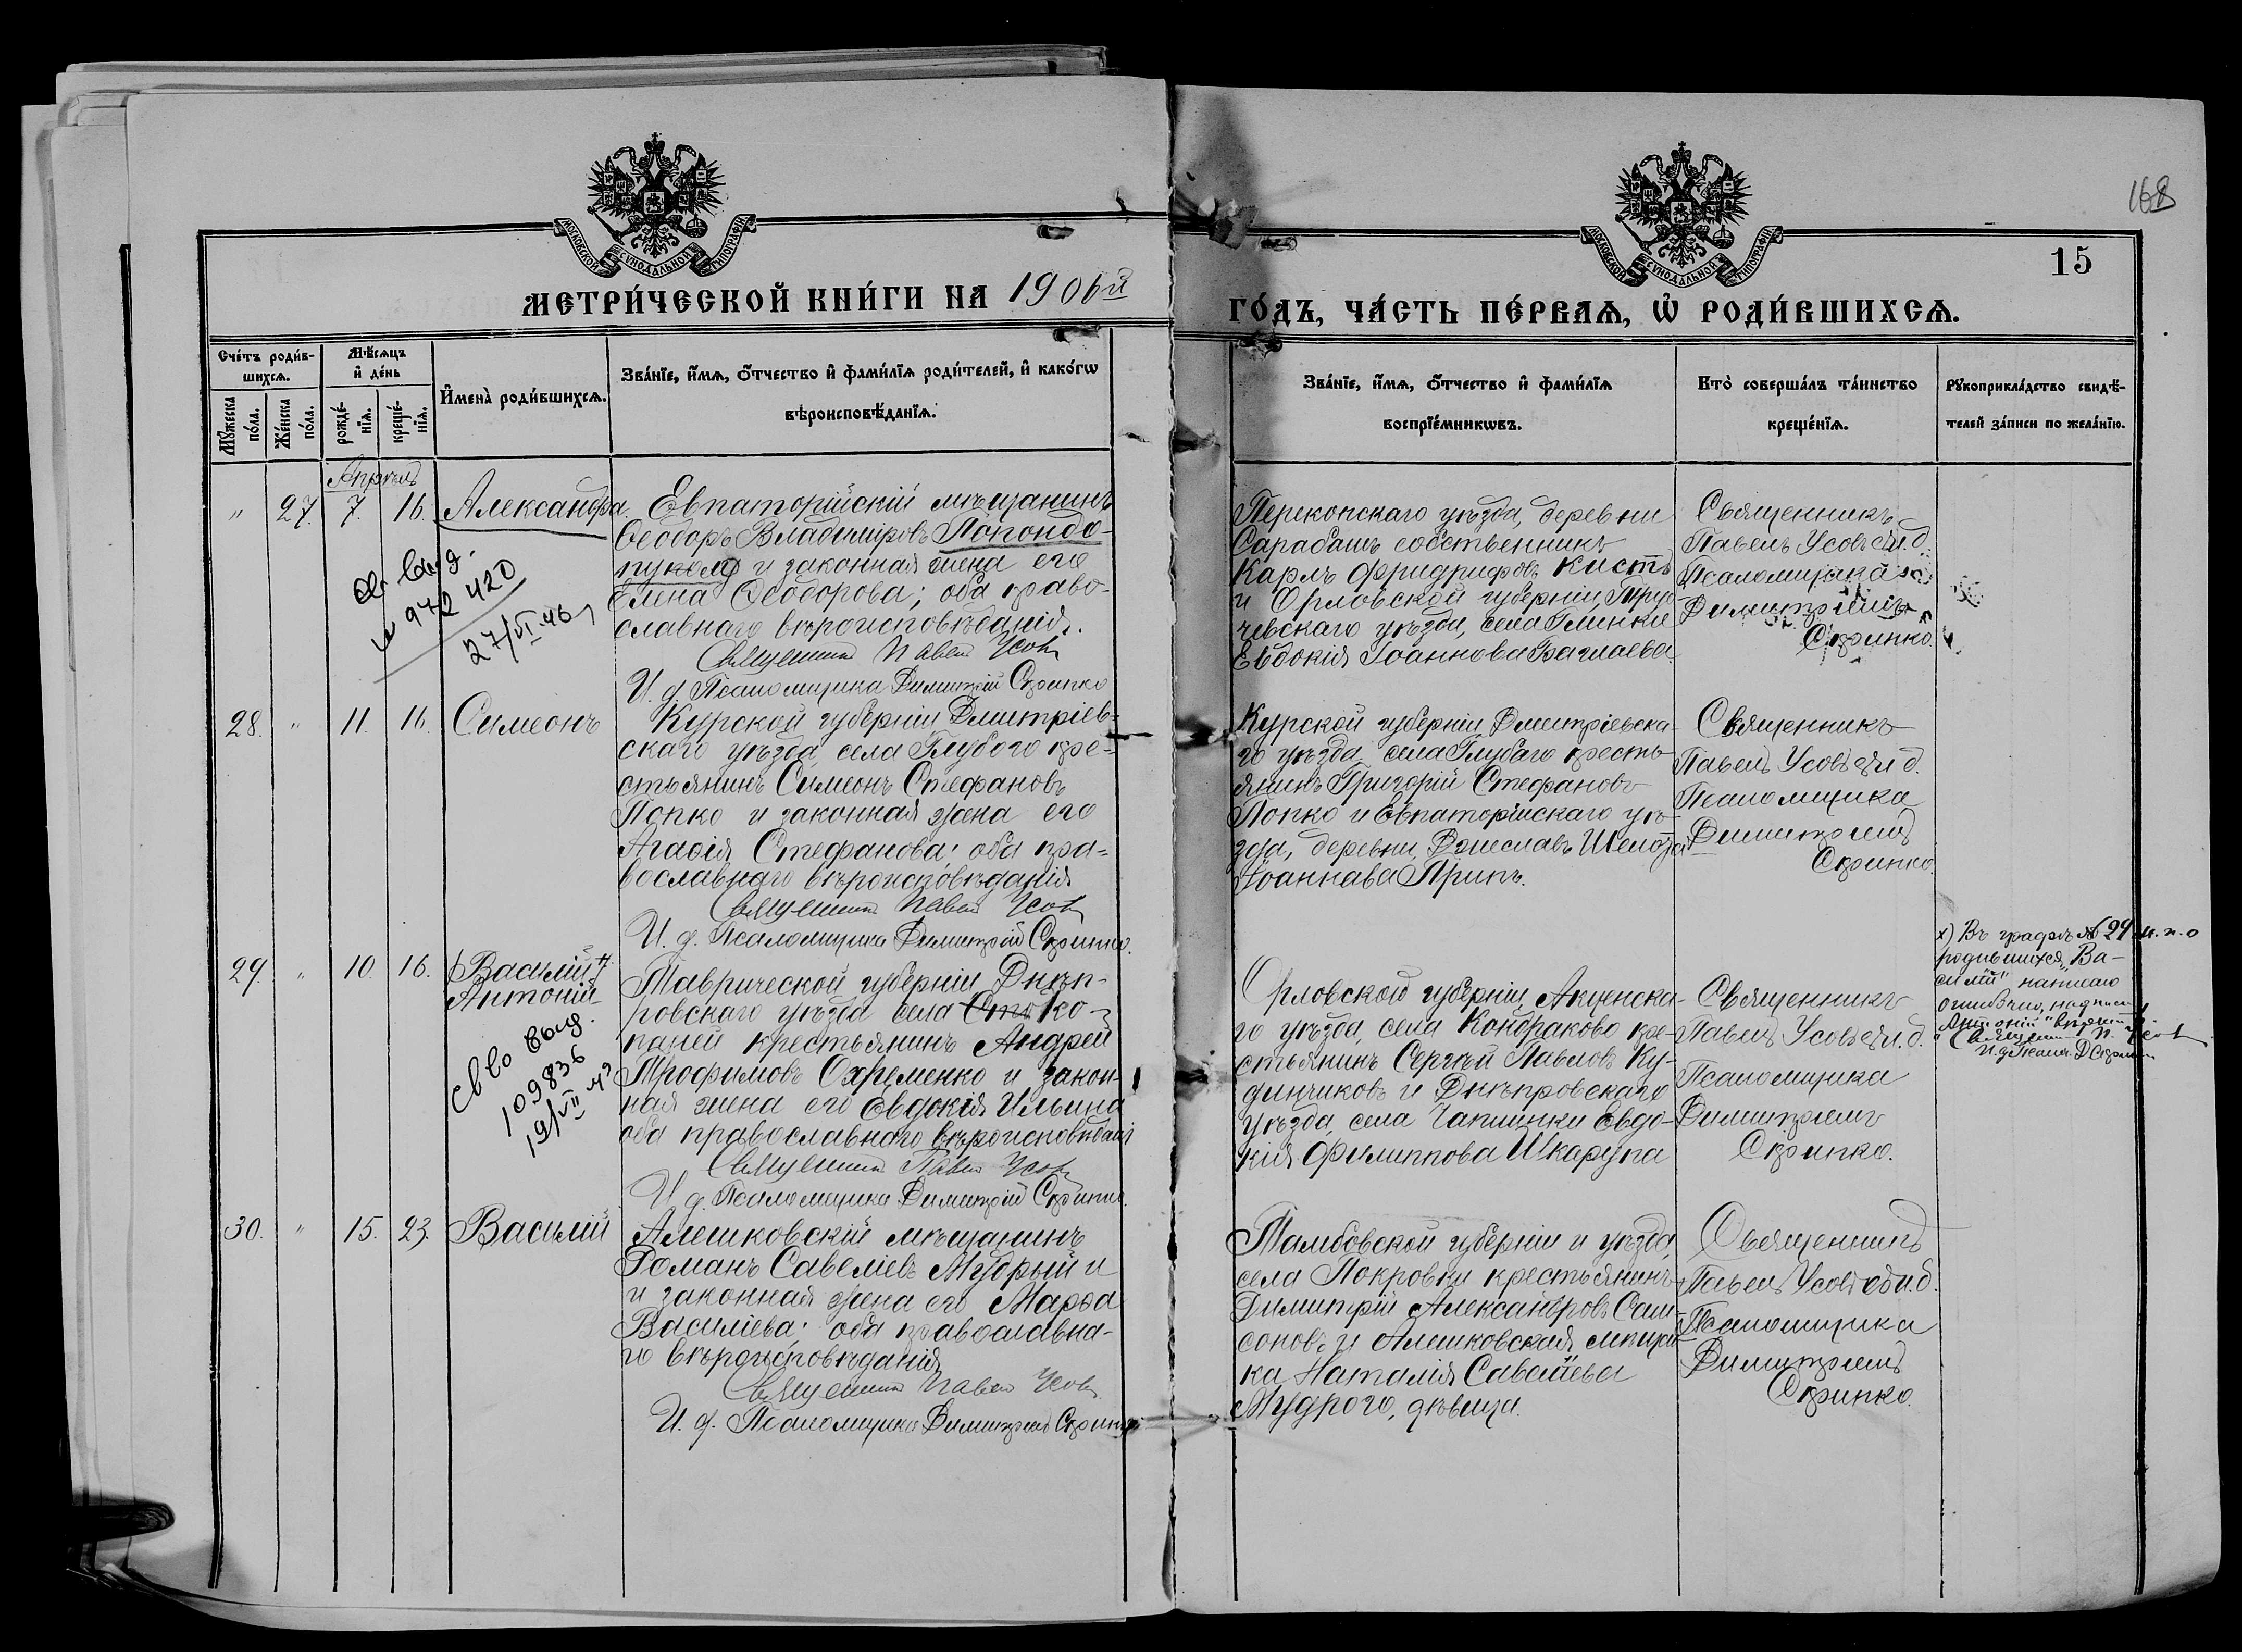 168
МОСКОВСКОЙ СУНОДАЛЬНОЙ ТИПОГРАФІИ
МОСКОВСКОЙ СУНОДАЛЬНОЙ ТИПОГРАФІИ
15
МЕТРИ́ЧЕСКОЙ КНИ́ГИ НА 1906й
ГО́ДЪ, ЧА́СТЬ ПЕ́РВАѦ, Ѡ҆ РОДИ́ВШИХСѦ.
Сче́тъ роди́в-
шихсѧ.
Мѣ́сѧцъ
и҆ де́нь
Мꙋ́жеска
по́ла.
Же́нска
по́ла.
рожде́-
нїѧ.
креще́-
нїѧ.
И҆мена̀ роди́вшихсѧ.
Зва́нїе, и҆́мѧ, ѻ҆́тчество и҆ фами́лїѧ роди́телей, и҆ како́гѡ
вѣроисповѣ́данїѧ.
Зва́нїе, и҆́мѧ, ѻ҆́тчество и҆ фами́лїѧ
воспрїе́мникѡвъ.
Кто̀ соверша́лъ та́инство
креще́нїѧ.
Рꙋкоприкла́дство свидѣ́-
телей за́писи по жела́нїю.
Апрѣль
" 27. 7. 16. Александра.
Евпаторійскій мѣщанинъ
Ѳеодоръ Владиміровъ Попондо-
и законная жена его
Елена Ѳеодорова; оба право-
славнаго вѣроисповѣданія.
Священникъ Павелъ Усовъ
И. д. Псаломщика Димитрій Скрипко
выд.
972 420
27/VI 46
Перекопскаго уѣзда, деревни
Сарабашъ собственникъ
Карлъ Фридриховъ Кистъ
и Орловской губерніи, Труб-
чевскаго уѣзда, села Глинки
Евдокія Іоаннова
Священникъ
Павелъ Усовъ съ и. д.
Псаломщика
Димитріемъ
Скрипко.
28. " 11. 16. Симеонъ
Курской губерніи Дмитріев-
скаго уѣзда, села Глубого кре-
стьянинъ Симеонъ Стефановъ
Попко и законная жена его
Агаѳія Стефанова; оба пра-
вославнаго вѣроисповѣданія
Священникъ Павелъ Усовъ
И. д. Псаломщика Димитрій Скрипко.
Курской губерніи Дмитріевска-
го уѣзда, села Глубаго кресть-
янинъ Григорій Стефановъ
Попко и Евпаторійскаго уѣ-
зда, деревни
Іоаннава Принъ.
Священникъ
Павелъ Усовъ съ и. д.
Псаломщика
Димитріемъ
Скрипко.
29. " 10. 16. Василій
Антоній
Св во выд.
109836
19/VII 43
Таврической губерніи Днѣп-
ровскаго уѣзда села Ко-
паней крестьянинъ Андрей
Трофимовъ Охременко и закон-
ная жена его Евдокія Ильина
оба православнаго вѣроисповѣданія
Священникъ Павелъ Усовъ
И. д. Псаломщика Димитрій Скрипко.
Орловской губерніи,
го уѣзда, села Кондраково кре-
стьянинъ Сергѣй Павловъ Ку-
динчиковъ и Днѣпровскаго
уѣзда, села Чаплинки Евдо-
кія Филиппова Шкарупа
Священникъ
Павелъ Усовъ съ и. д.
Псаломщика
Димитріемъ
Скрипко.
х) Въ графѣ № 29 м. п. о
родившихся, "Ва-
силій" написано
ошибочно, надпись
Антоній "вѣрить"
Священникъ П. Усовъ
И. д. Псалм. Д. Скрипко
30. " 15. 23. Василій
Алешковскій мѣщанинъ
Романъ Савеліевъ Мудрый и
и законная жена его Марѳа
Василіева; оба православна-
го вѣроисповѣданія
Священникъ Павелъ Усовъ.
И. д. Псаломщика Димитрій Скрипко
Тамбовской губерніи и уѣзда,
села Покровки крестьянинъ
Димитрій Александровъ Сам-
соновъ и Алешковская мѣщан-
ка Наталія Савеліева
Мудрого, дѣвица.
Священникъ
Павелъ Усовъ съ и. д.
Псаломщика
Димитріемъ
Скрипко.